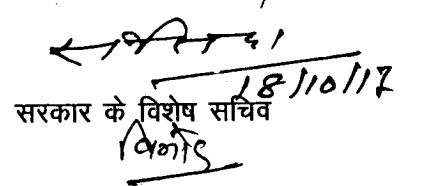 18/10/17
सरकार के विशेष सचिव
विनोद